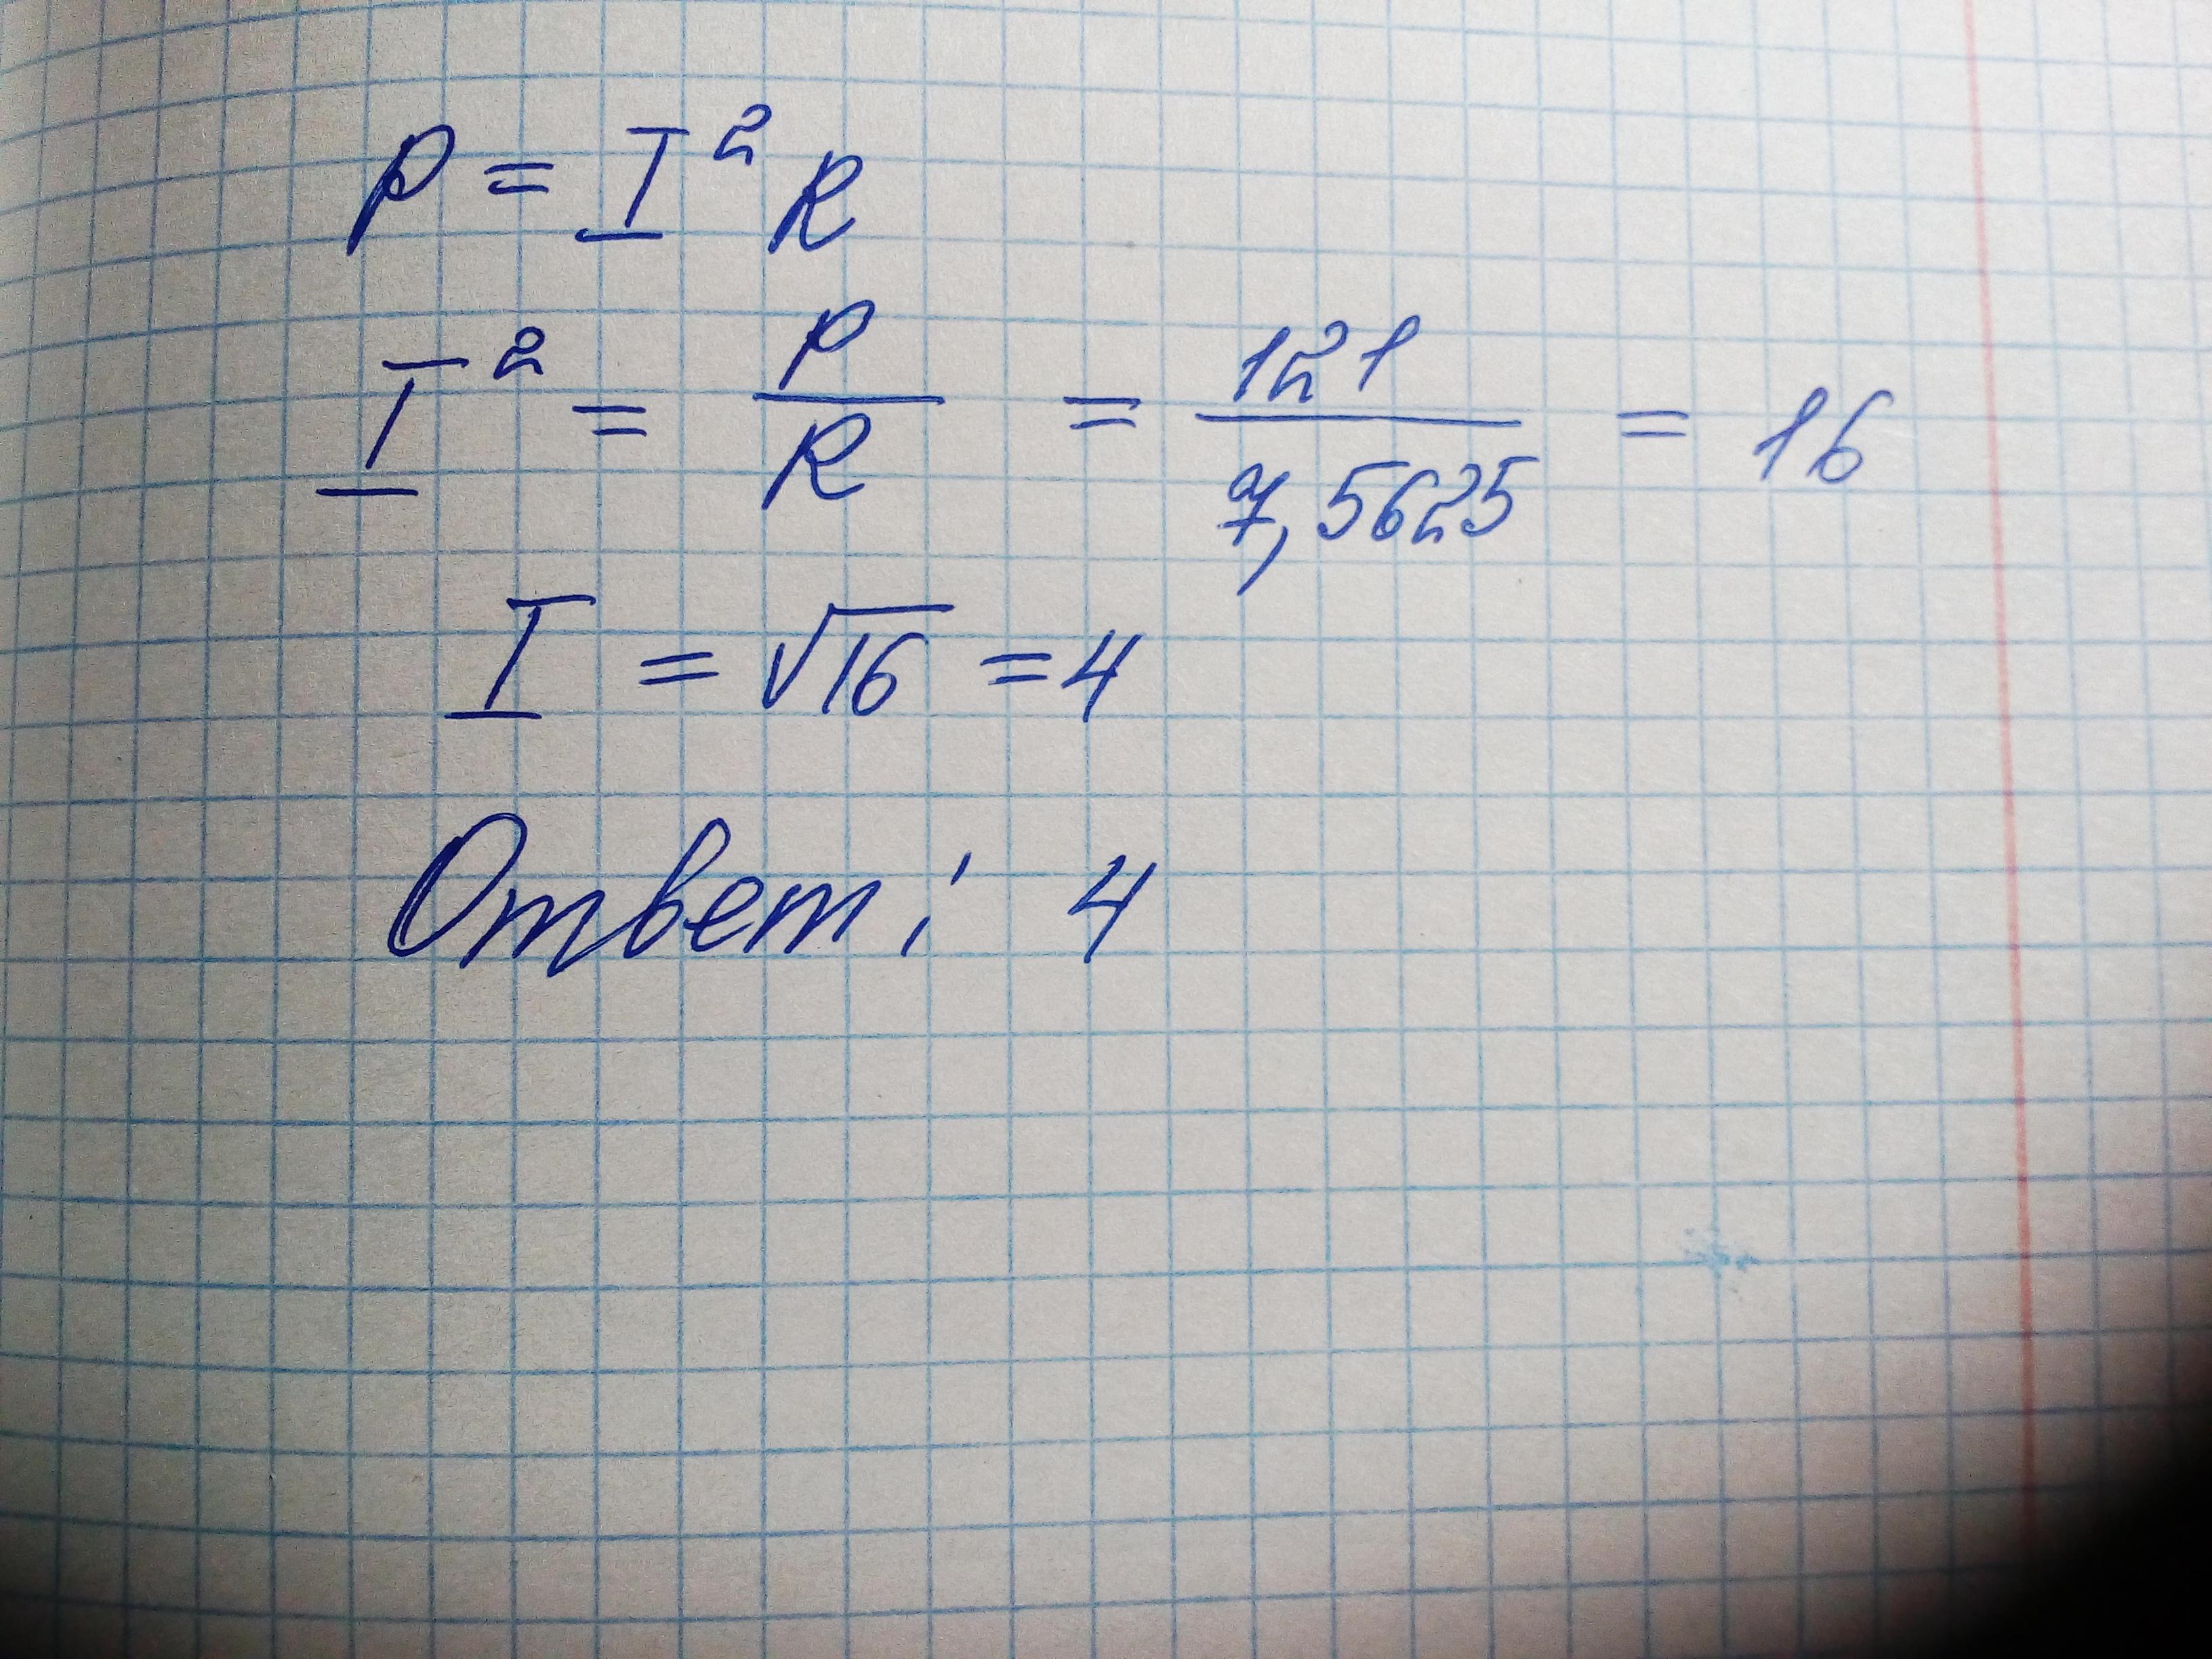 P = I² R
I² = P/R = 121/7,5625 = 16
I = √16 = 4
Ответ: 4